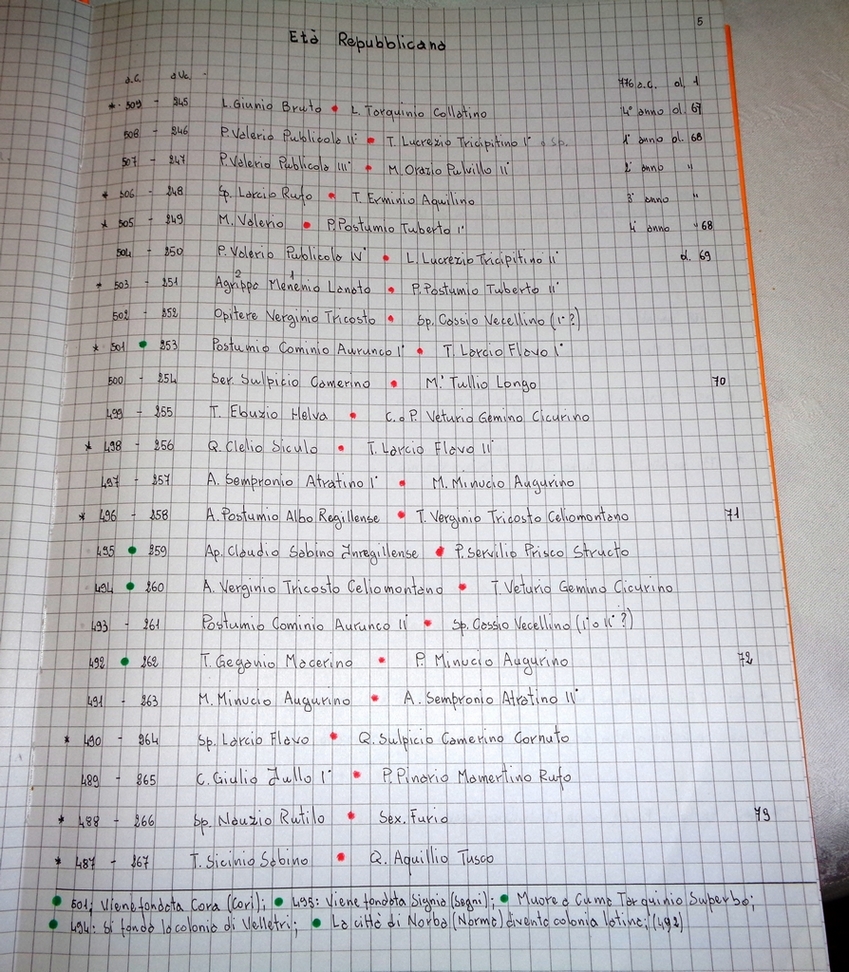 5
Età Repubblicana
a.C. a.Vc. - 776 a.C. ol. 1
* · 509 - 245 L. Giunio Bruto • L. Tarquinio Collatino 4° anno ol. 67
508 - 246 P. Valerio Publicola II° • T. Lucrezio Tricipitino I° o Sp. 1° anno ol. 68
507 - 247 P. Valerio Publicola III° • M. Orazio Pulvillo II° 2° anno "
* 506 - 248 Sp. Larcio Rufo • T. Erminio Aquilino 3° anno "
* 505 - 249 M. Valerio • P. Postumio Tuberto I° 4° anno " 68
504 - 250 P. Valerio Publicola IV° • L. Lucrezio Tricipitino II° ol. 69
2 1
* 503 - 251 Agrippa Menenio Lanato • P. Postumio Tuberto II°
502 - 252 Opitere Verginio Tricosto • Sp. Cassio Vecellino (I°?)
* 501 • 253 Postumio Cominio Aurunco I° • T. Larcio Flavo I°
500 - 254 Ser. Sulpicio Camerino • M.' Tullio Longo 70
499 - 255 T. Ebuzio Helva • C. o P. Veturio Gemino Cicurino
* 498 - 256 Q. Clelio Siculo • T. Larcio Flavo II°
497 - 257 A. Sempronio Atratino I° • M. Minucio Augurino
* 496 - 258 A. Postumio Albo Regillense • T. Verginio Tricosto Celiomontano 71
495 • 259 Ap. Claudio Sabino Inregillense • P. Servilio Prisco Structo
494 • 260 A. Verginio Tricosto Celiomontano • T. Veturio Gemino Cicurino
493 - 261 Postumio Cominio Aurunco II° • Sp. Cassio Vecellino (I° o II°?)
492 • 262 T. Geganio Macerino • P. Minucio Augurino 72
491 - 263 M. Minucio Augurino • A. Sempronio Atratino II°
* 490 - 264 Sp. Larcio Flavo • Q. Sulpicio Camerino Cornuto
489 - 265 C. Giulio Jullo I° • P. Pinario Mamertino Rufo
* 488 - 266 Sp. Nauzio Rutilo • Sex. Furio 73
* 487 - 267 T. Sicinio Sabino • Q. Aquillio Tusco
• 501: Viene fondata Cora (Cori); • 495: Viene fondata Signia (Segni); • Muore a Cuma Tarquinio Superbo;
• 494: Si fonda la colonia di Velletri; • La città di Norba (Norma) diventa colonia latina; (492)